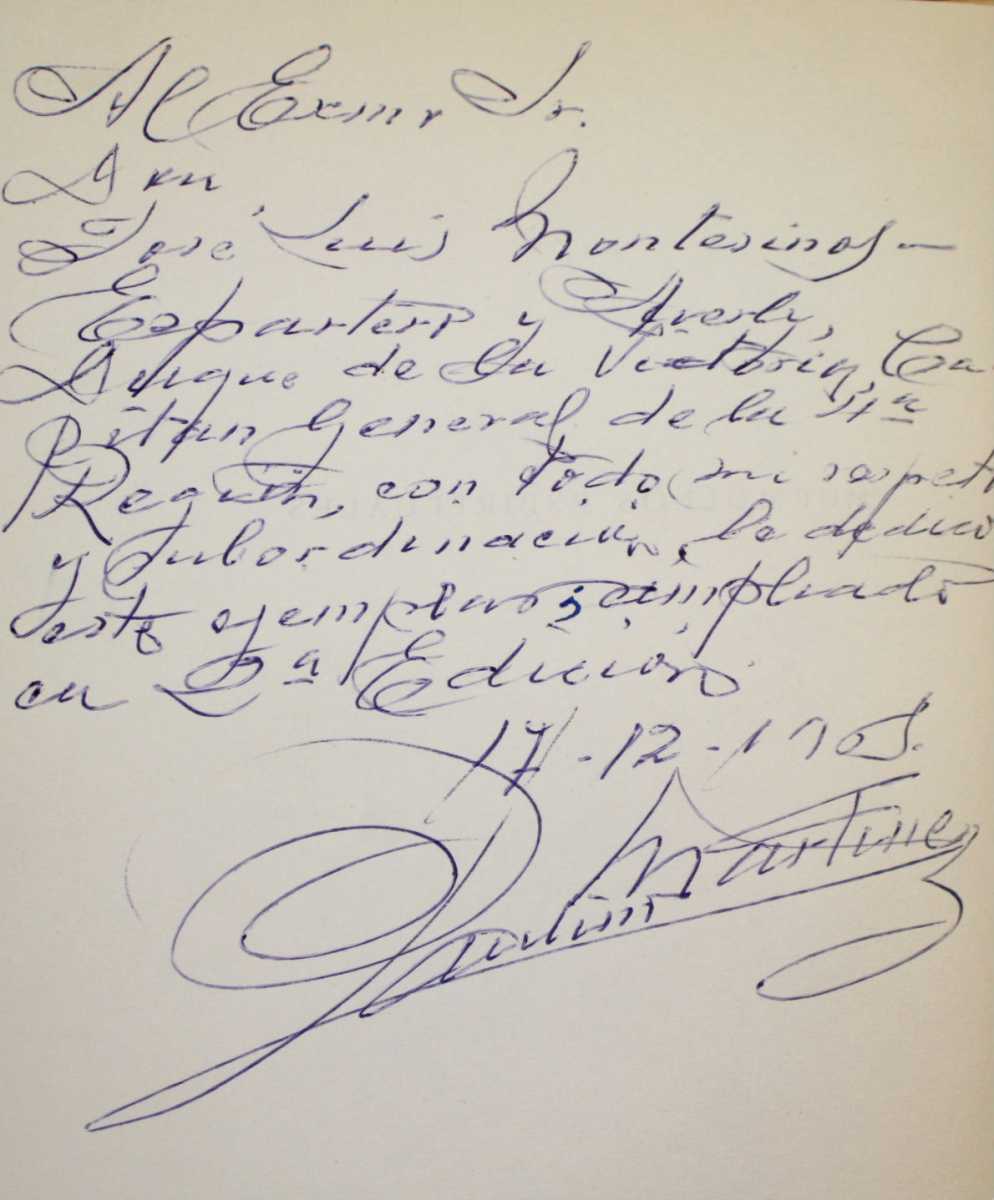 Al Exmo Sr.
Don
José Luis Montesinos-
Espartero y Averly,
Duque de La Victoria, Ca-
pitan General de la 4ª
Región, con todo mi respeto
y subordinación, le dedico
este ejemplar, ampliado
en 2ª Edición
17-12-1965.
Paulino Martinez